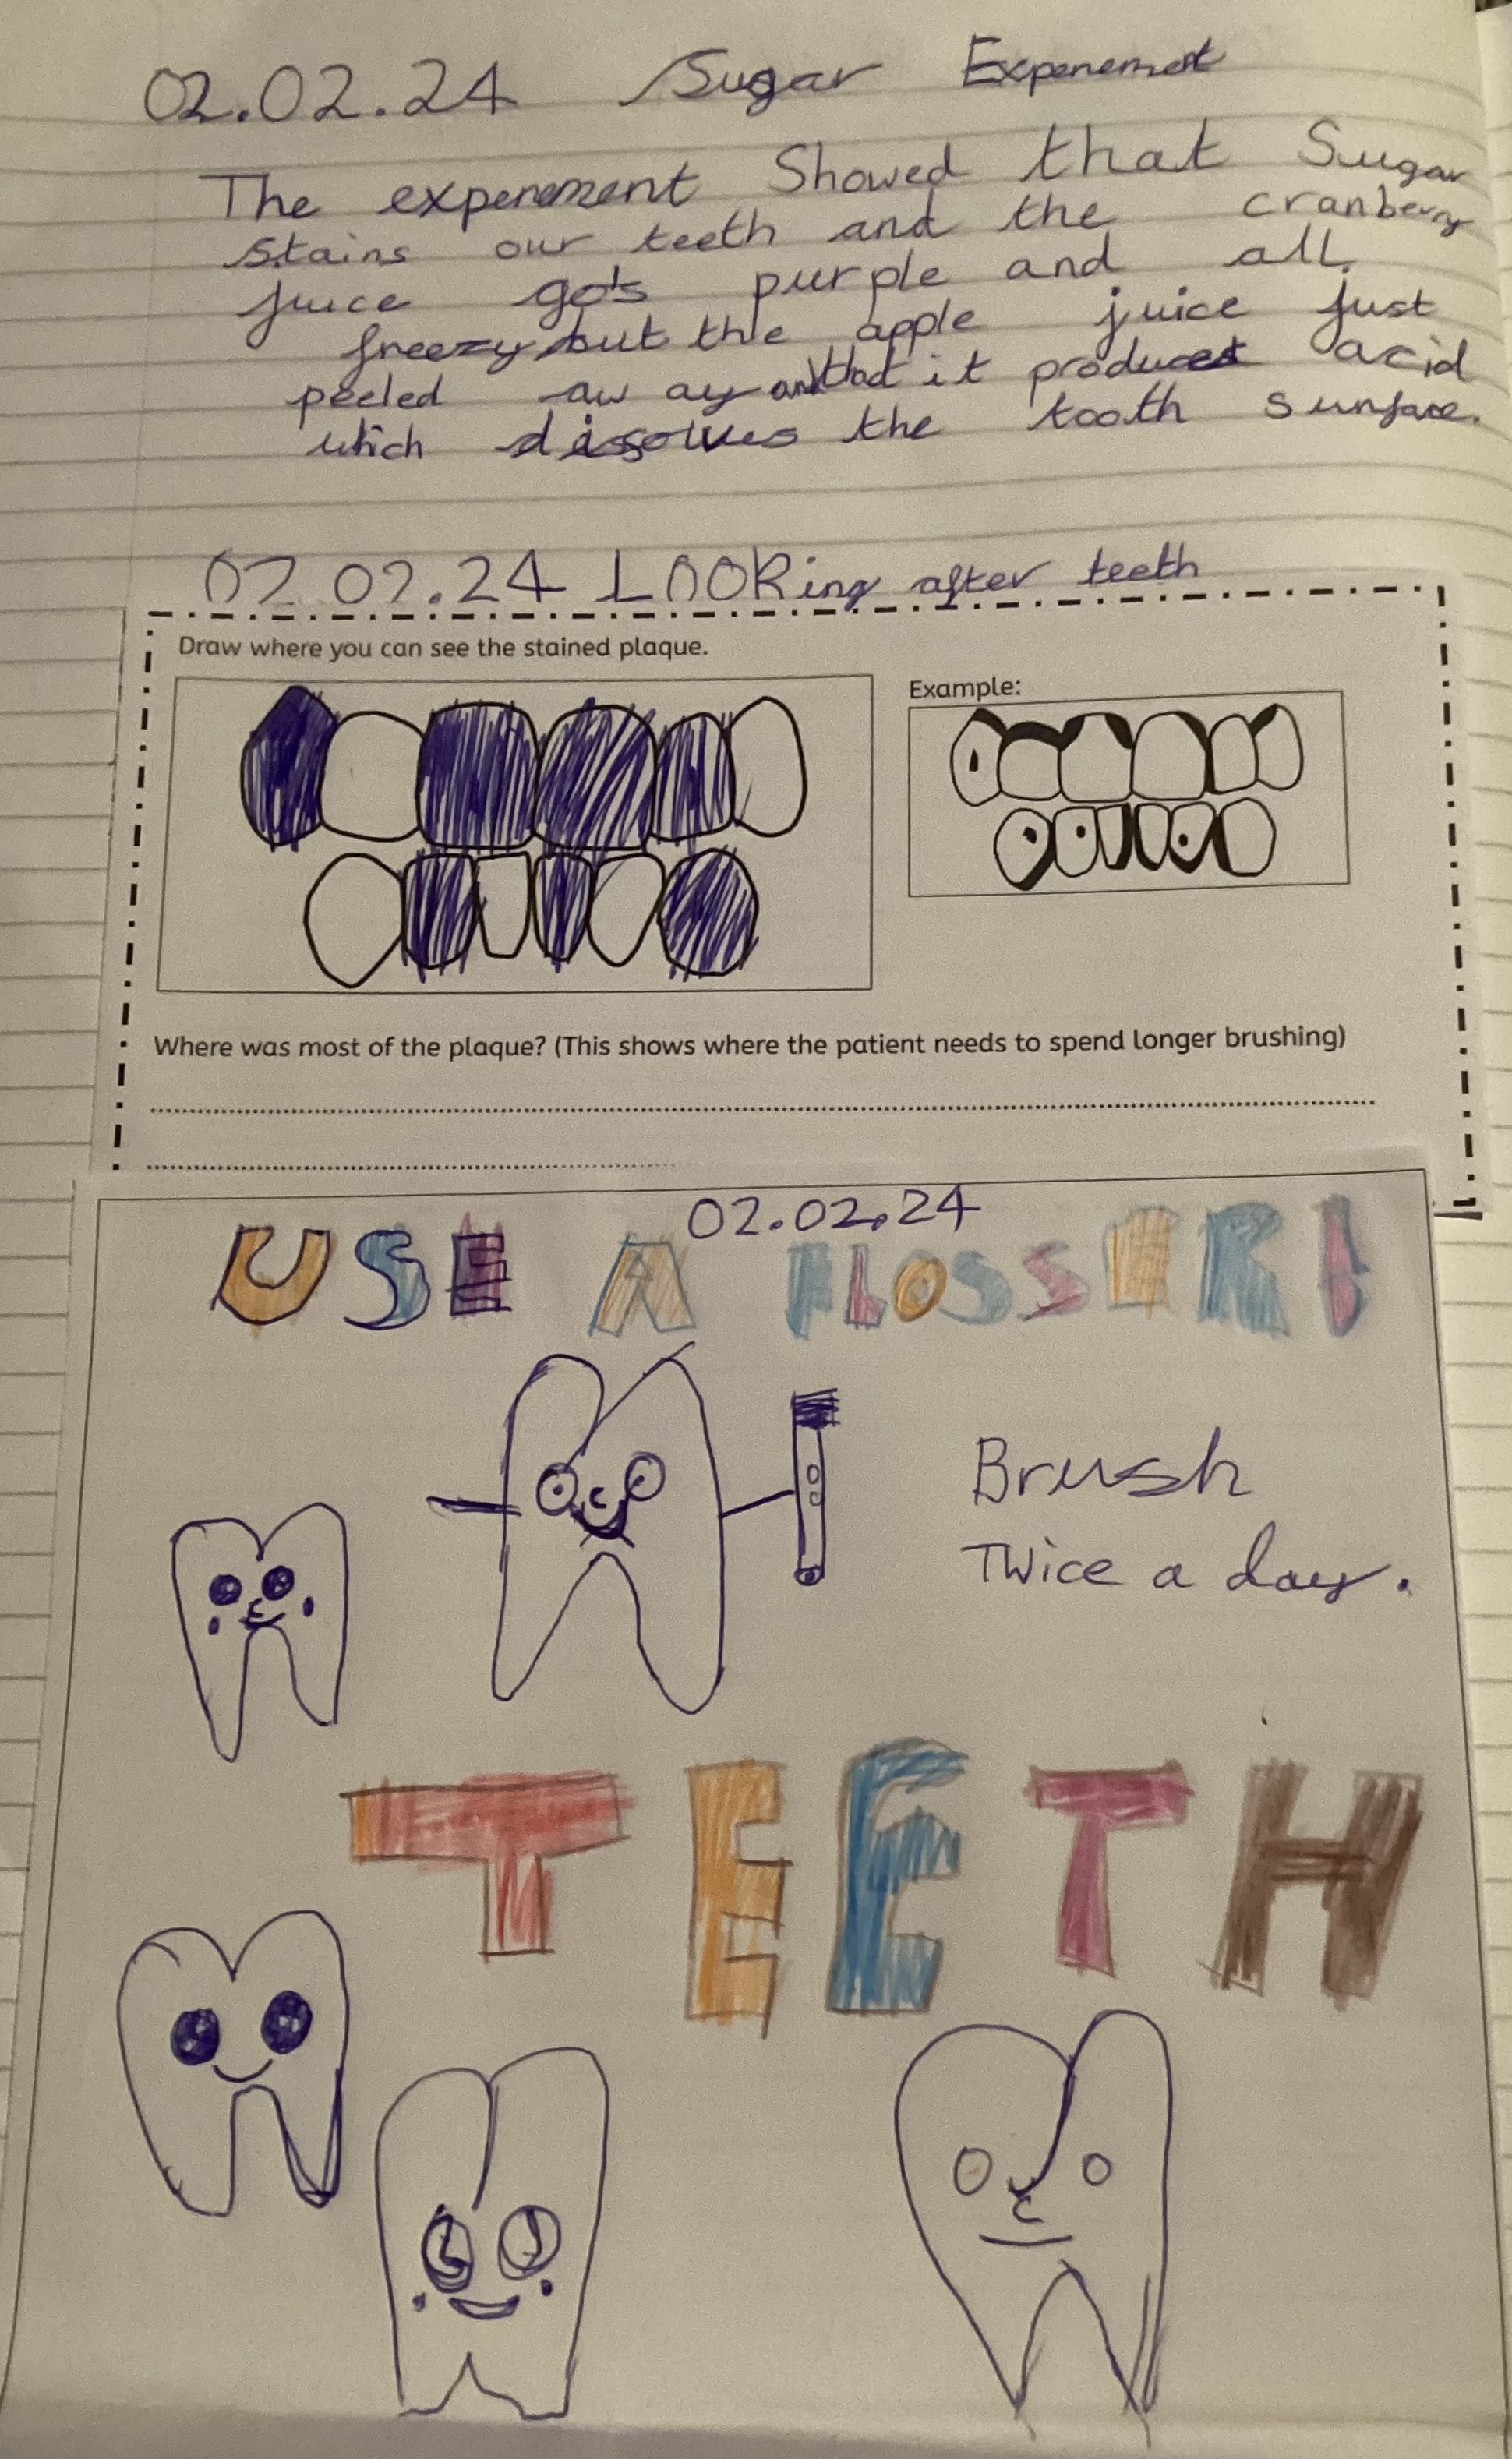 02.02.24 Sugar Experement
The experement Showed that Sugar
stains our teeth and the cranberry
juice go's purple and all
freezy but the apple juice just
peeled aw ay and that it produces acid
which dissolves the tooth surface.
02.02.24 LOOKing after teeth
Draw where you can see the stained plaque.
Example:
Where was most of the plaque? (This shows where the patient needs to spend longer brushing)
02.02.24
USE A FLOSSER!
Brush
Twice a day.
TEETH